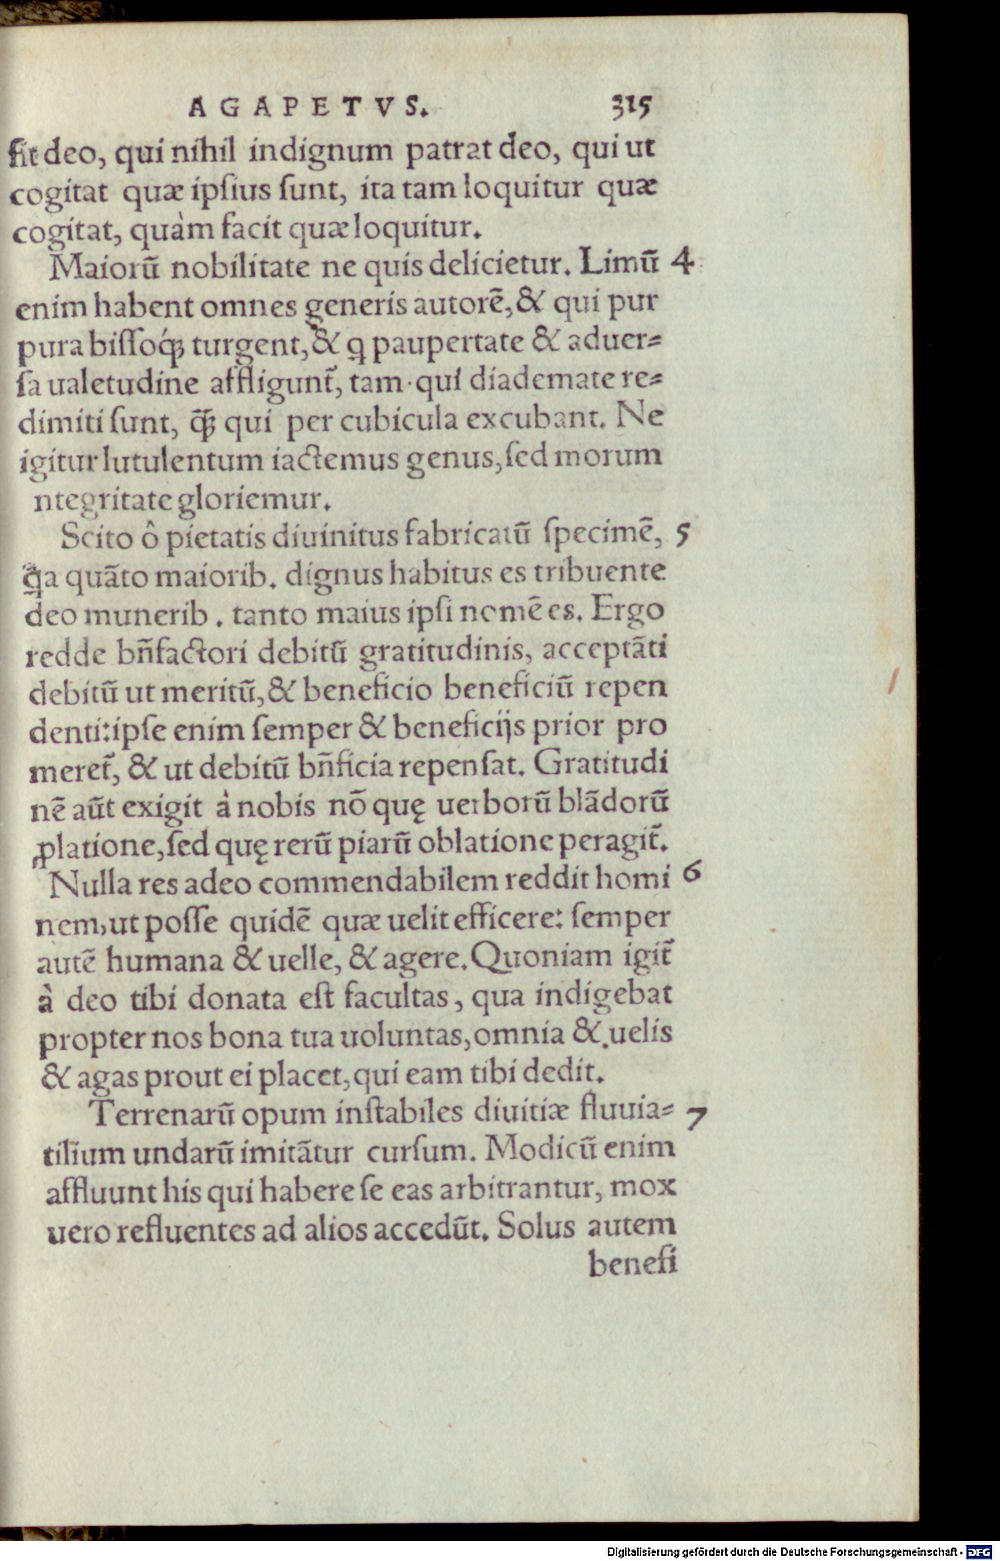 AGAPETVS. 315
fit deo, qui nihil indignum patrat deo, qui ut
cogitat quæ ipſius ſunt, ita tam loquitur quæ
cogitat, quàm facit quæ loquitur.
Maiorũ nobilitate ne quis delicietur. Limũ 4
enim habent omnes generis autorẽ, & qui pur
pura biſſoq́ꝫ turgent, & q paupertate & aduer⸗
ſa ualetudine affligunt̃, tam qui diademate re⸗
dimiti ſunt, q̃ꝫ qui per cubicula excubant. Ne
igitur lutulentum iactemus genus, ſed morum
ntegritate gloriemur.
Scito ô pietatis diuinitus fabricatũ ſpecimẽ, 5
q̃a quãto maiorib. dignus habitus es tribuente
deo munerib. tanto maius ipſi nomẽ es. Ergo
redde bñfactori debitũ gratitudinis, acceptãti
debitũ ut meritũ, & beneficio beneficiũ repen
denti: ipſe enim ſemper & beneficijs prior pro
meret̃, & ut debitũ bñficia repenſat. Gratitudi
nẽ aũt exigit à nobis nõ quę uerborũ blãdorũ
ꝓlatione, ſed quę rerũ piarũ oblatione peragit̃.
Nulla res adeo commendabilem reddit homi 6
nem, ut poſſe quidẽ quæ uelit efficere: ſemper
autẽ humana & uelle, & agere. Quoniam igit̃
à deo tibi donata eſt facultas, qua indigebat
propter nos bona tua uoluntas, omnia & uelis
& agas prout ei placet, qui eam tibi dedit.
Terrenarũ opum inſtabiles diuitiæ fluuia⸗ 7
tilium undarũ imitãtur curſum. Modicũ enim
affluunt his qui habere ſe eas arbitrantur, mox
uero refluentes ad alios accedũt. Solus autem
benefi
Digitalisierung gefördert durch die Deutsche Forschungsgemeinschaft - DFG